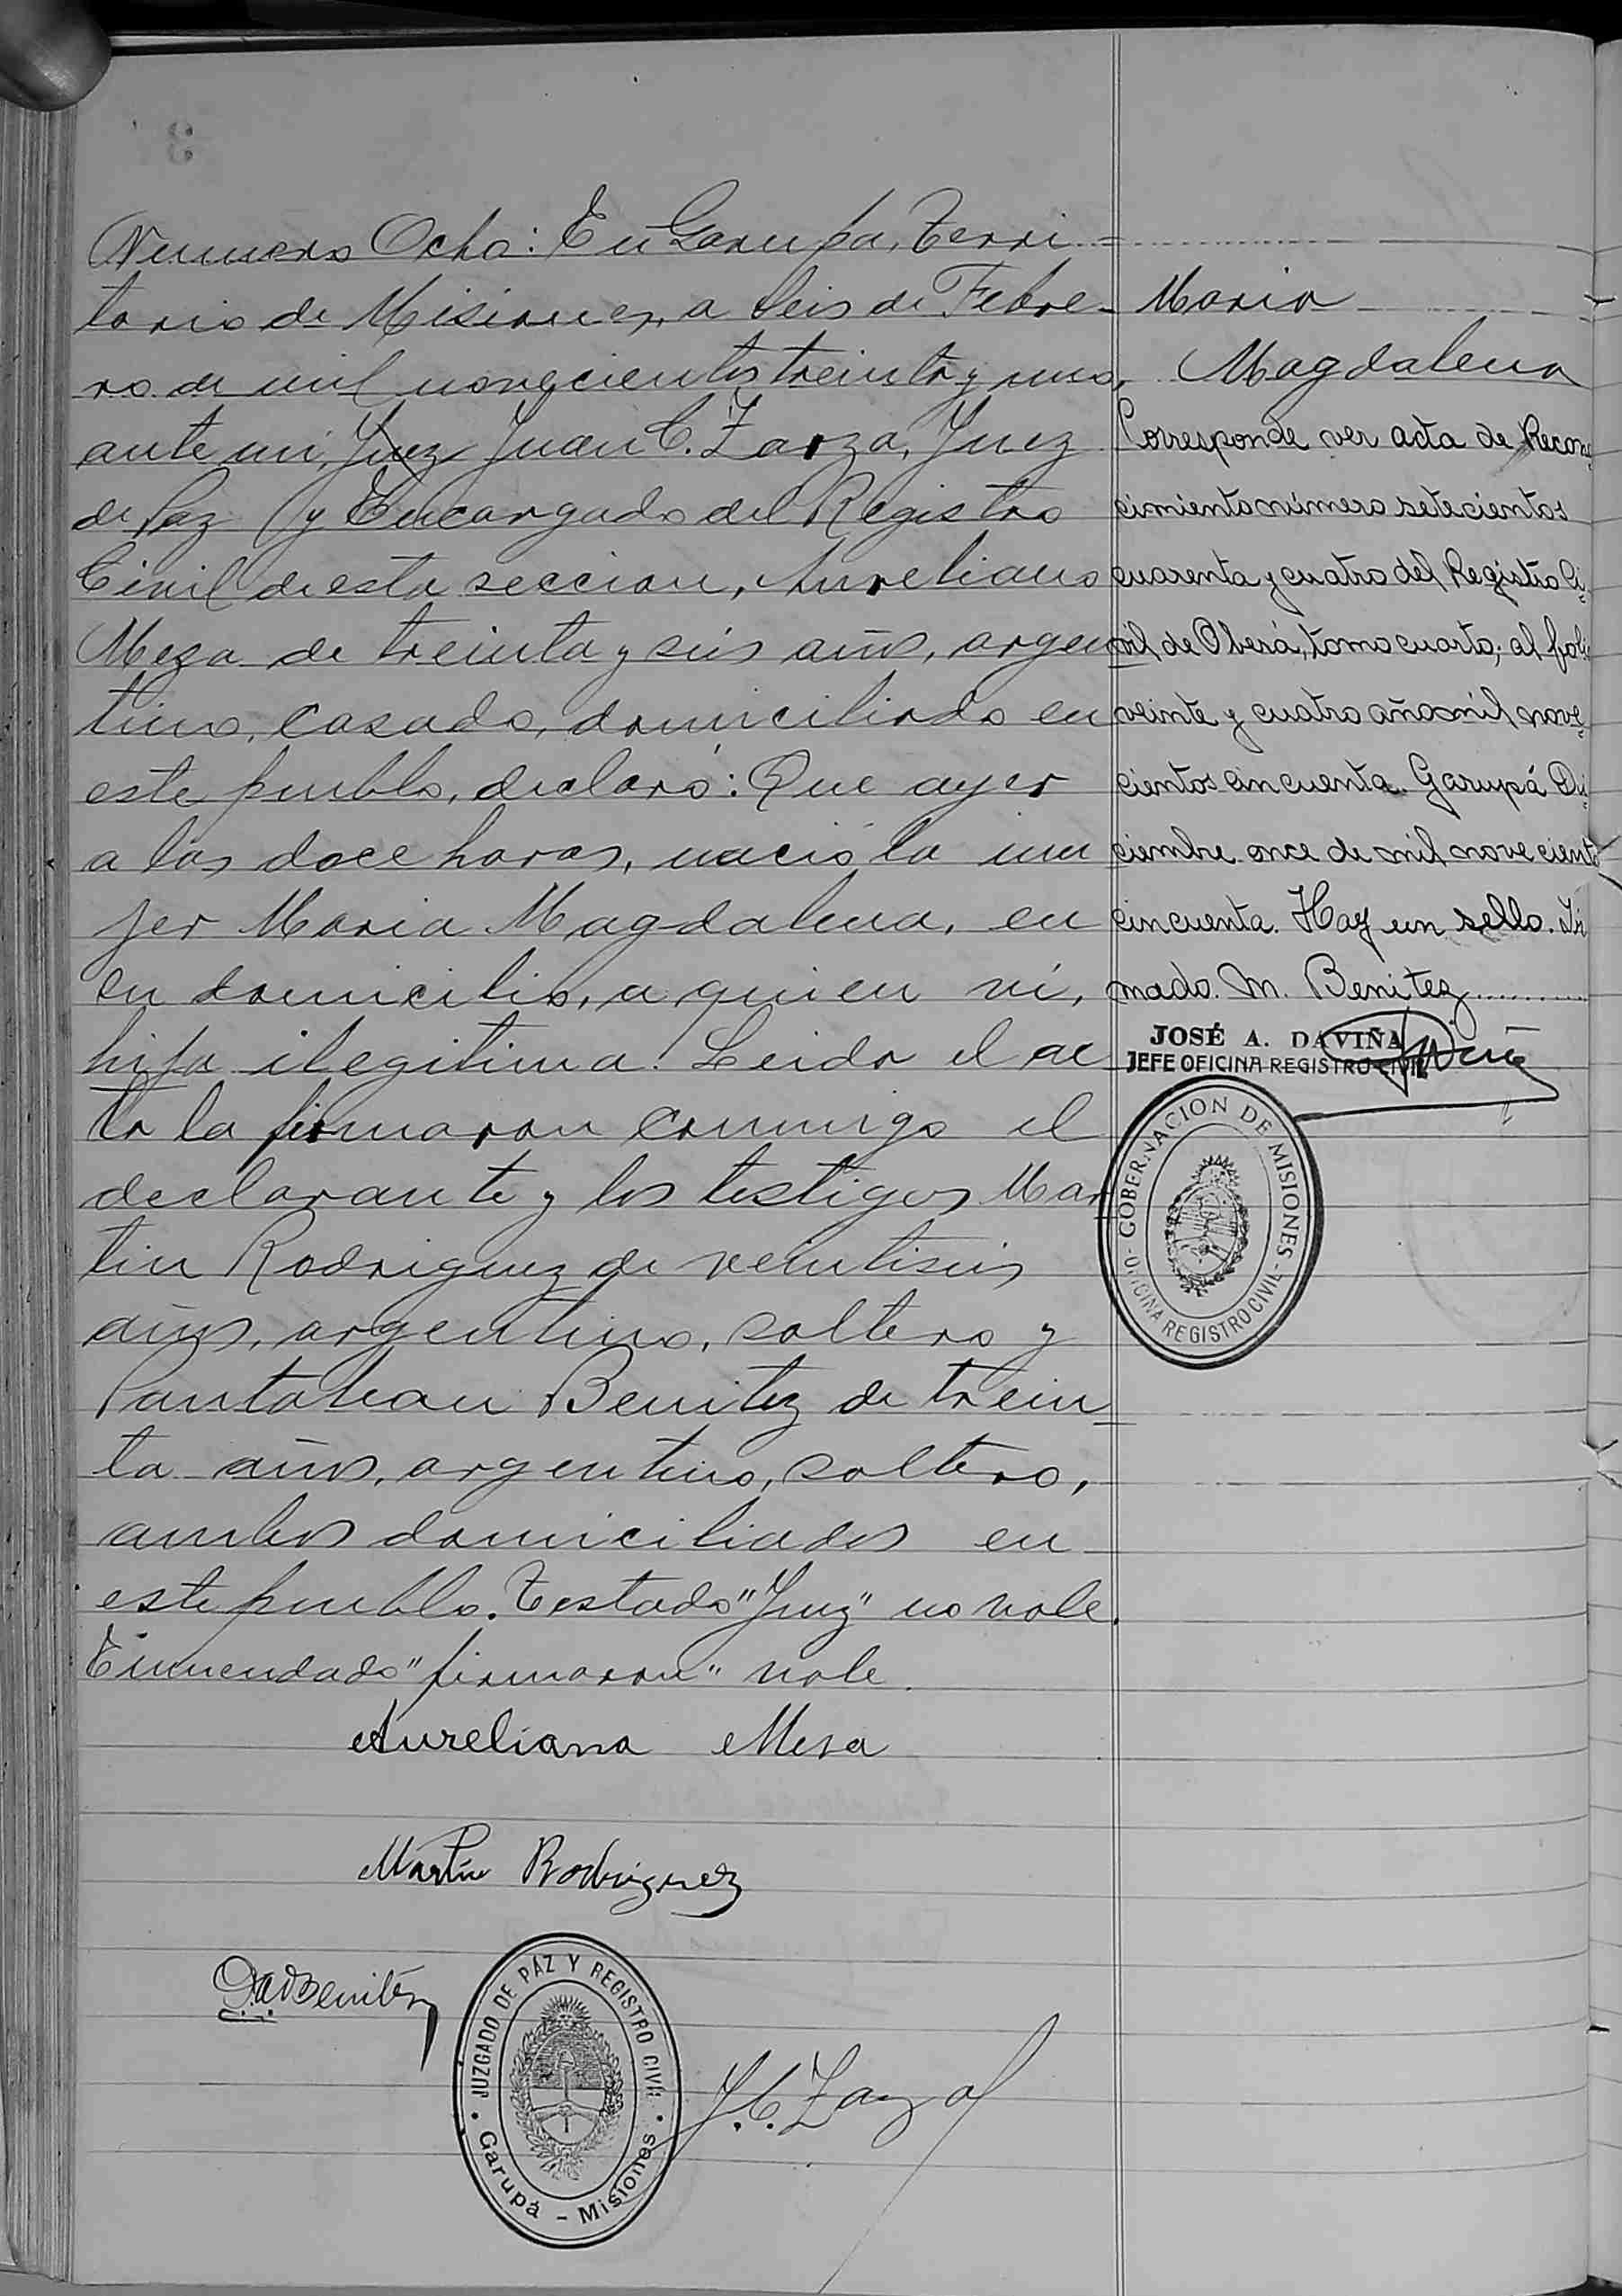 Numero Ocho: En Garupa, Terri=
torio de Misiones, a seis de Febre-
ro de mil novecientos treinta y uno,
ante mi, Juez Juan C. Zarza, Juez
de Paz y Encargado del Registro
Civil de esta seccion, Aureliano
Meza de treinta y seis años, argen
tino, casado, domiciliado en
este pueblo, declaró: Que ayer
a las doce horas, nació la mu
jer Maria Magdalena, en
su domicilio, a quien ví,
hija ilegitima. Leida el ac
ta la firmaron conmigo el
declarante y los testigos Mar
tin Rodriguez de veintiseis
años, argentino, soltero y
Pantaleon Benitez de trein
ta años, argentino, soltero,
ambos domiciliados en
este pueblo. Testado "Juez" no vale.
Enmendado "firmaron" vale.
Aureliano Mesa
Martin Rodriguez
Benitez
JUZGADO DE PAZ Y REGISTRO CIVIL
Garupá - Misiones
J. C. Zarza
Maria
Magdalena
Corresponde ver acta de Recono
cimiento número setecientos
cuarenta y cuatro del Registro Ci
vil de Oberá, tomo cuarto, al folio
veinte y cuatro año mil nove
cientos cincuenta. Garupá Di
ciembre once de mil novecientos
cincuenta. Hay un sello. Fir
mado. M. Benitez
JOSÉ A. DAVIÑA
JEFE OFICINA REGISTRO CIVIL
GOBERNACION DE MISIONES
OFICINA REGISTRO CIVIL